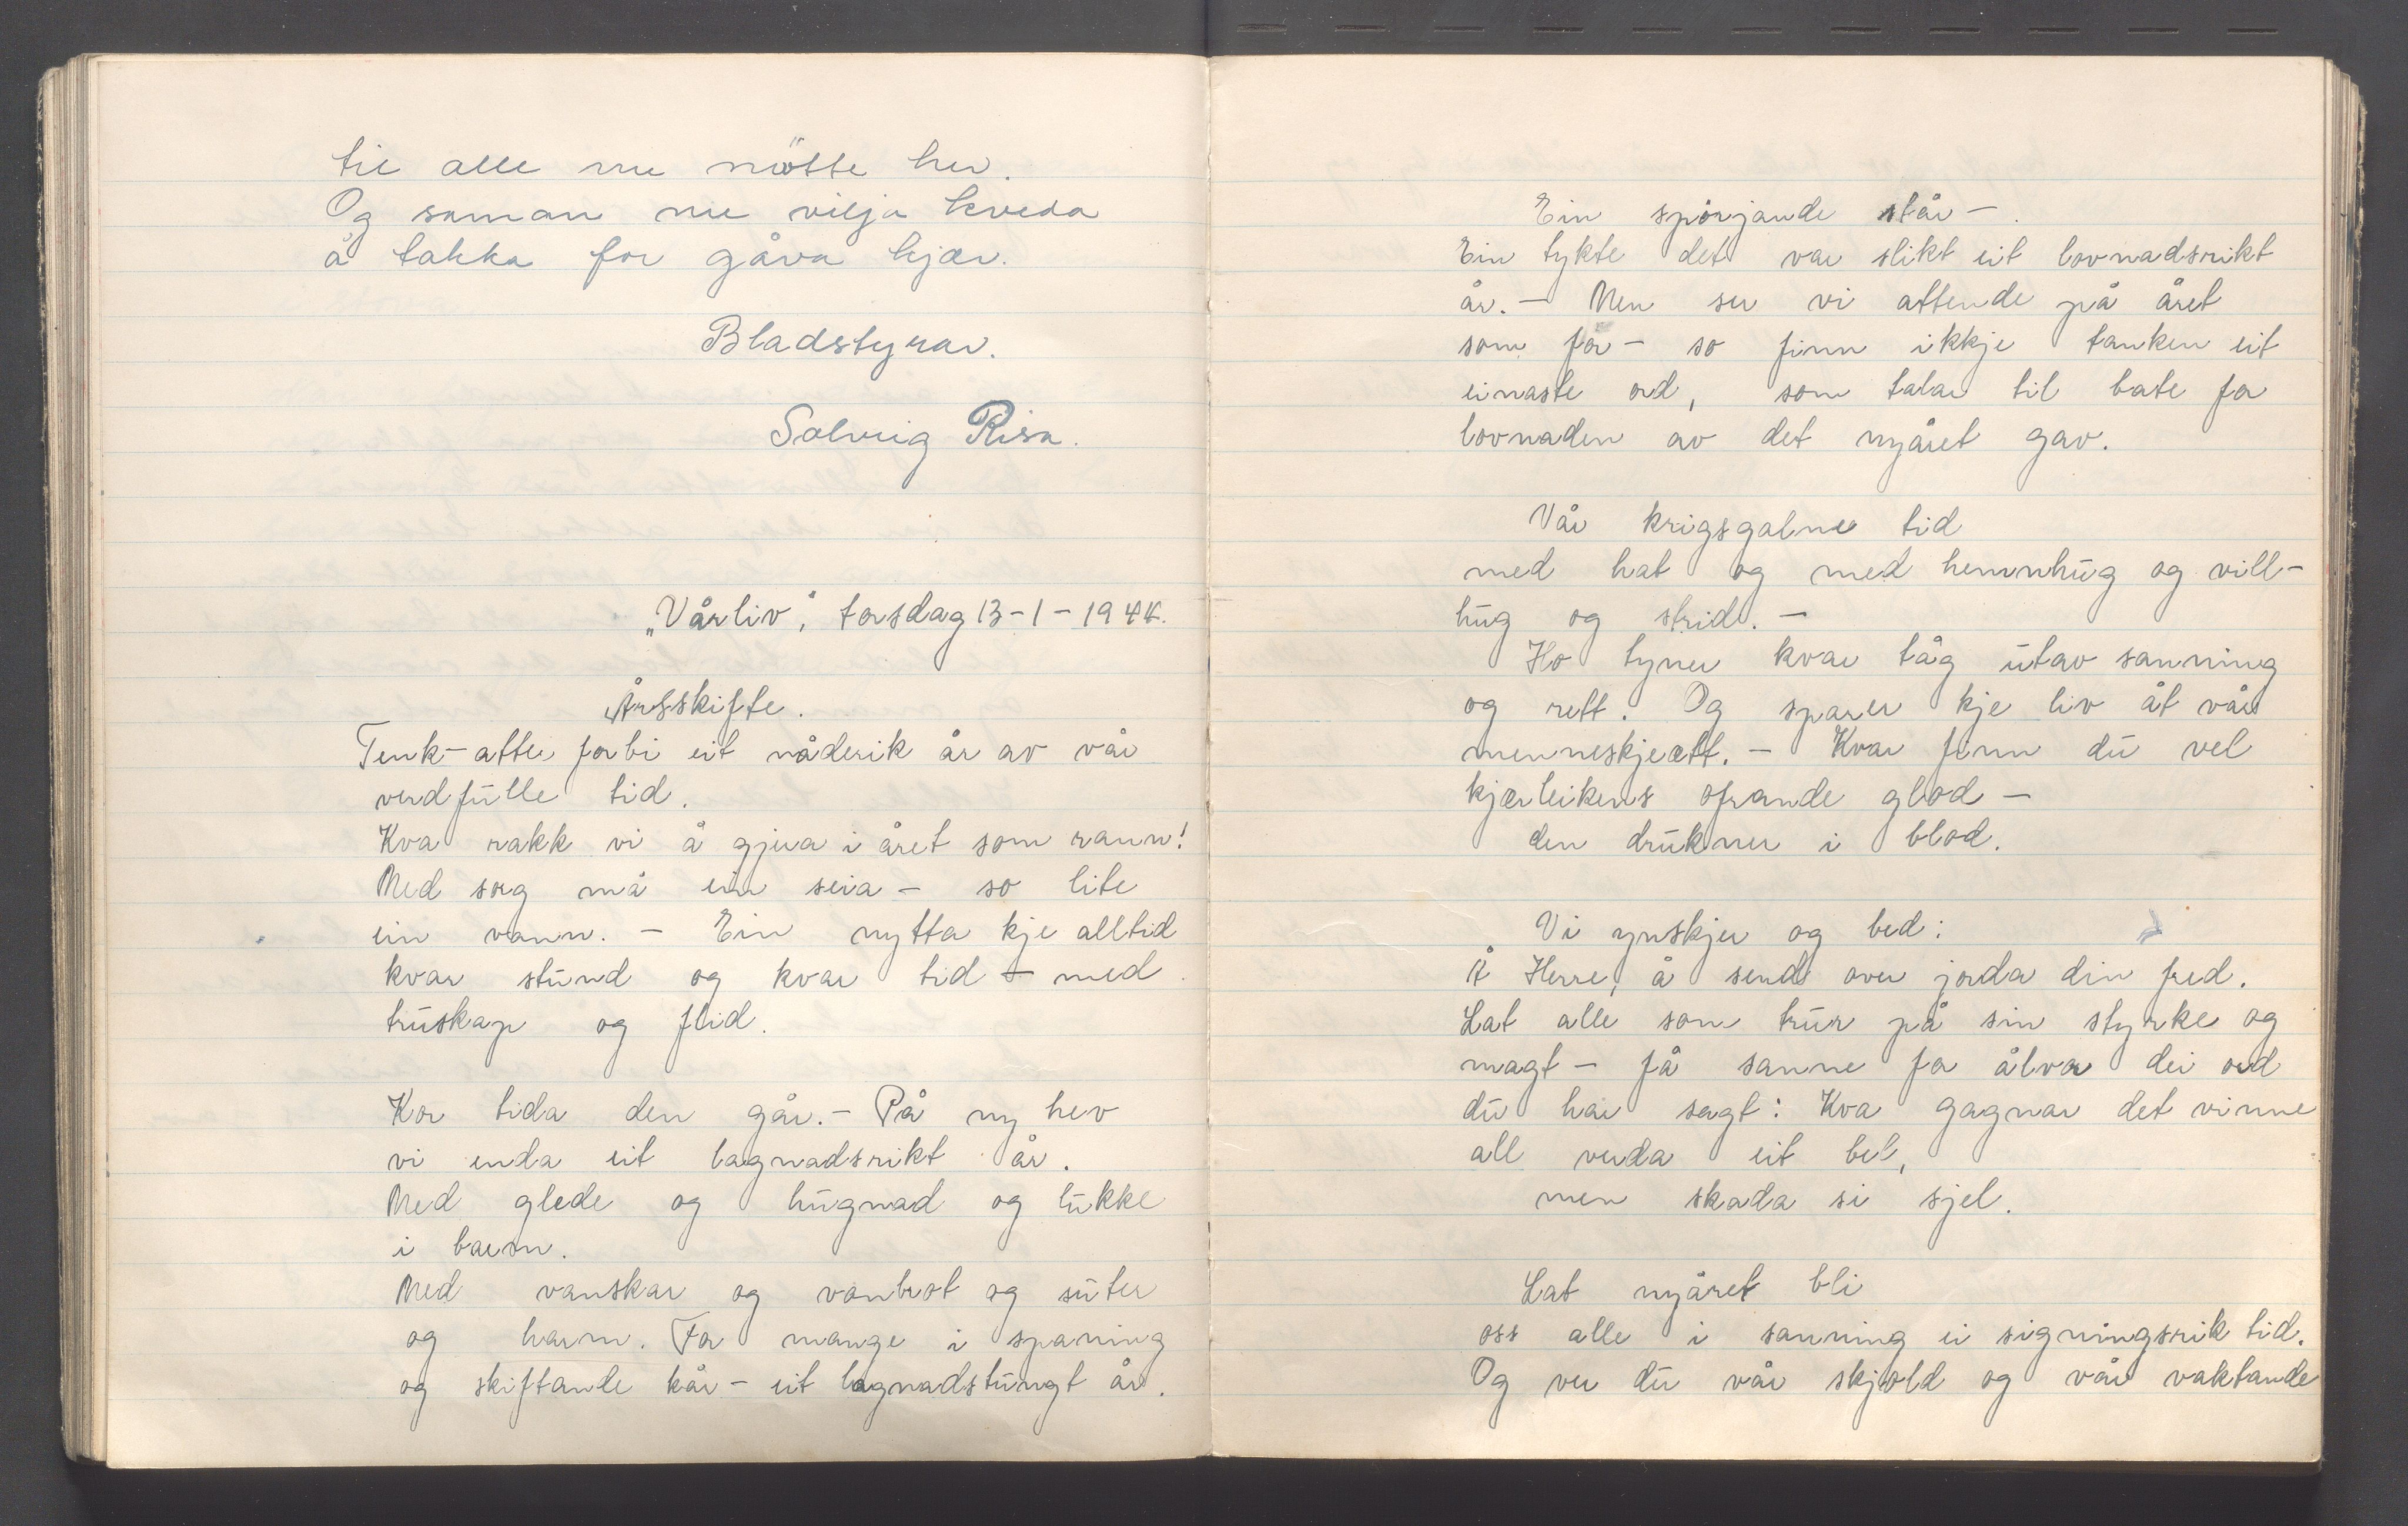 til alle me møtte her.
Og saman me vilja kveda
å takka for gåva kjær.
Bladstyrar.
Solveig Risa.
„Vårliv", torsdag 13-1-1944.
Årsskifte.
Tenk- atter forbi eit nåderik år av vår
verdfulle tid.
Kva rakk vi å gjera i året som rann!
Med sorg må ein seia – so lite
ein vann. – Ein nytta kje alltid
kvar stund og kvar tid – med
truskap og flid.
Kor tida den går. – På ny hev
vi enda eit lagnadsrikt år.
Med glede og hugnad og lukke
i barm.
Med vanskar og vonbrot og suter
og harm. For mange i spaning
og skiftande kår – eit lagnadstungt år.
Ein spørjande står –.
Ein tykte det var slikt eit lovnadsrikt
år. – Men ser vi attende på året
som for – so finn ikkje tanken eit
einaste ord, som talar til bate for
lovnaden av det nyåret gav.
Vår krigsgalne tid
med hat og med hemnhug og vill-
hug og strid. –
Ho tyner kvar tåg utav sanning
og rett. Og sparer kje liv åt vår
menneskjeætt. – Kvar finn du vel
kjærleikens ofrande glod –
den drukner i blod.
Vi ynskjer og bed:
Å Herre, å send over jorda din fred.
Lat alle som trur på sin styrke og
magt – få sanne for ålvor dei ord
du har sagt: Kva gagnar det vinne
all verda eit bel,
men skada si sjel.
Lat nyåret bli
oss alle i sanning ei signingsrik tid.
Og ver du vår skjold og vår vaktande